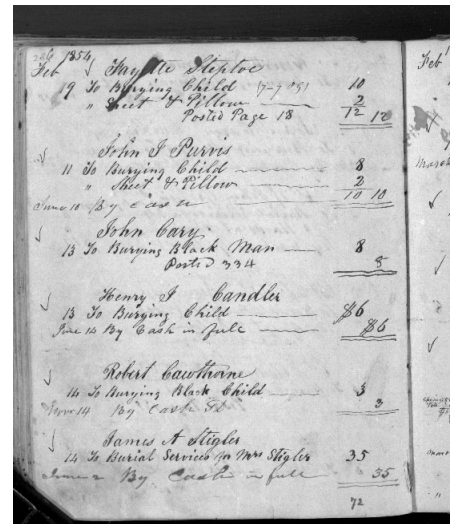 1854
Feb Fayette Steptoe
19 To Burying Child 10
" Sheet & Pillow 2
Posted Page 18 12 12
John J Purvis
11 To Burying Child 8
" Sheet & Pillow 2
10 10
June 10 By Cash
John Cary
13 To Burying Black Man 8
Posted 334 8
Henry J Candler
13 To Burying Child $6
June 14 By Cash in full $6
Robert Cawthorne
14 To Burying Black Child 3
14 By Cash 3
James A Stigler
14 To Burial Services for Mrs Stigler 35
By Cash in full 35
72
Feb